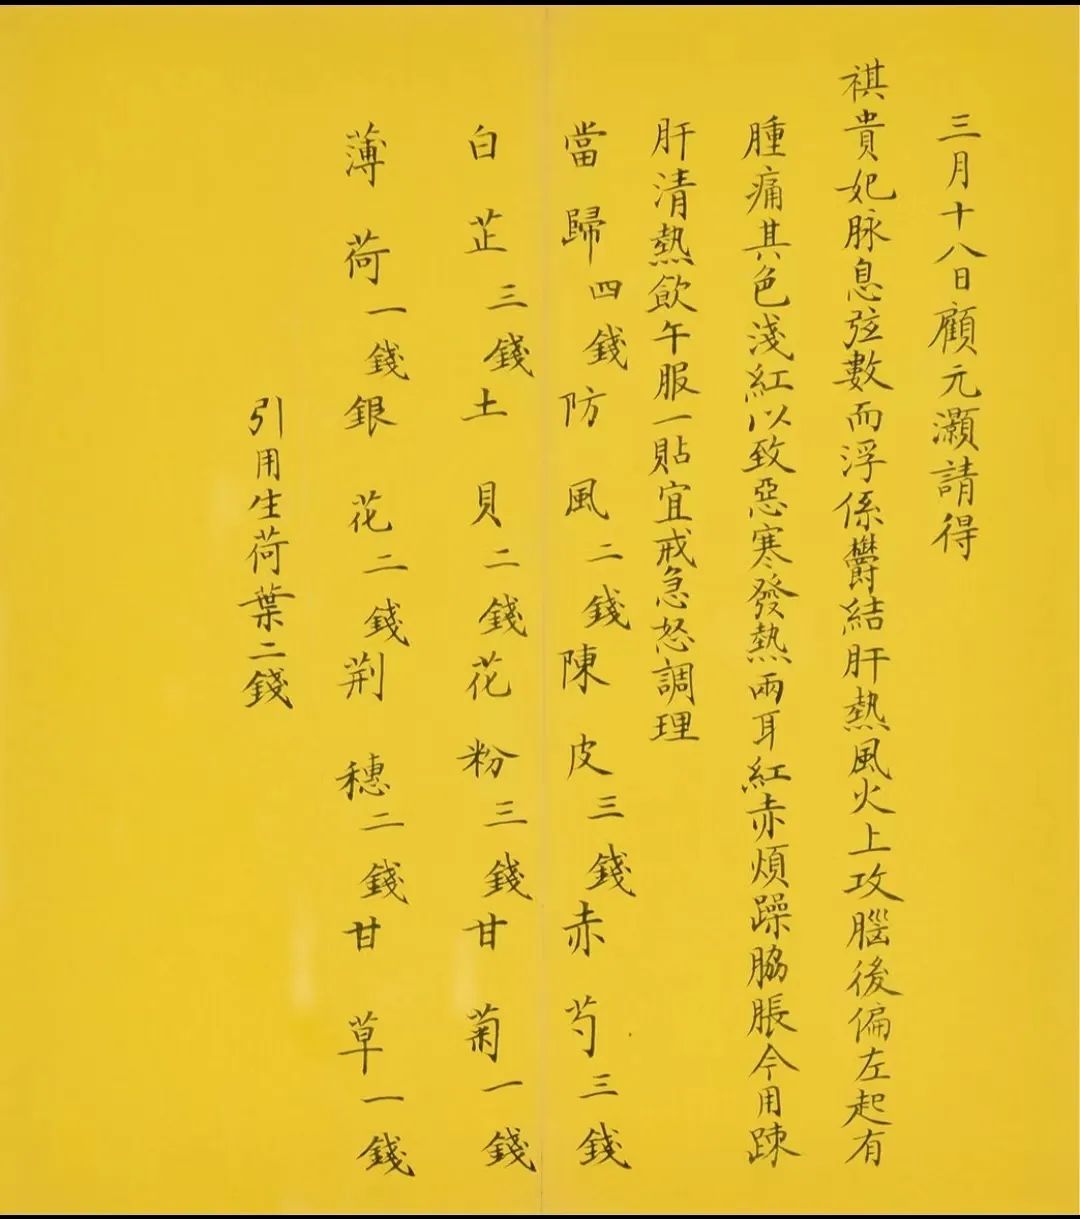 三月十八日顧元灝請得
祺貴妃脉息弦數而浮係欝結肝熱風火上攻腦後偏左起有
腫痛其色淺紅以致惡寒發熱兩耳紅赤煩躁脇脹今用踈
肝清熱飲午服一貼宜戒急怒調理
當歸四錢防風二錢陳皮三錢赤芍三錢
白芷三錢土貝二錢花粉三錢甘菊一錢
薄荷一錢銀花二錢荆穗二錢甘草一錢
引用生荷葉二錢